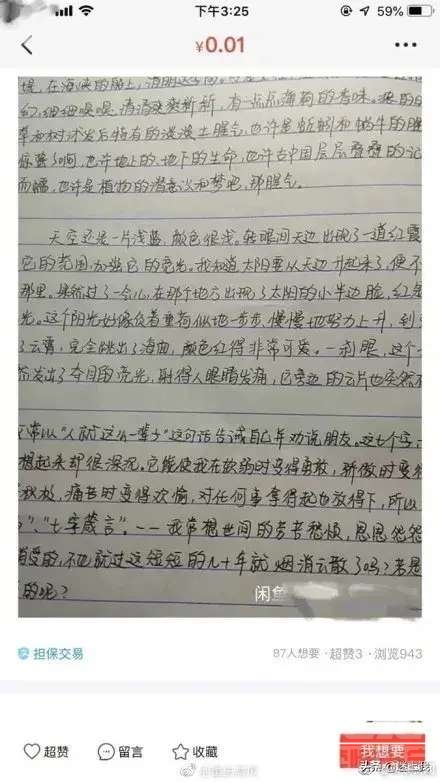 下午3:25
59%
¥0.01
堤,在海峡的船上,清明这
幻,细细嗅嗅,清清爽爽新新,有一点点薄荷的香味。
草和树沐发后特有的淡淡土腥气,也许是蚯蚓和蜗牛的腥
惊蛰了啊,也许地上的、地下的生命,也许古中国层层叠叠的记
而蠕,也许是植物的潜意识和梦吧,那腥气。
天空还是一片浅蓝,颜色很浅。转眼间天边出现了一道红霞
它的范围,加强它的亮光。我知道太阳要从天边升起来了,便不
那里。果然过了一会儿,在那个地方出现了太阳的小半边脸,红是
光。这个太阳好像负着重荷似地一步步,慢慢地努力上升,到
了云霞,完全跳出了海面,颜色红得非常可爱。一刹眼,这个
而发出了夺目的亮光,射得人眼睛发痛,它旁边的云片也突然
常以"人就这么一辈子"这句话告诫自己并劝说朋友。这七个字,
想起来却很深沉。它能使我在软弱时变得勇敢,骄傲时变得
积极,痛苦时变得欢愉,对任何事拿得起也放得下,所以
"、"七字箴言"。——我常想世间的劳苦愁烦,恩恩怨怨
消受的,不也就过这短短的几十年就烟消云散了吗?若是
的呢?
闲鱼
担保交易
87人想要·超赞3·浏览943
超赞
留言
收藏